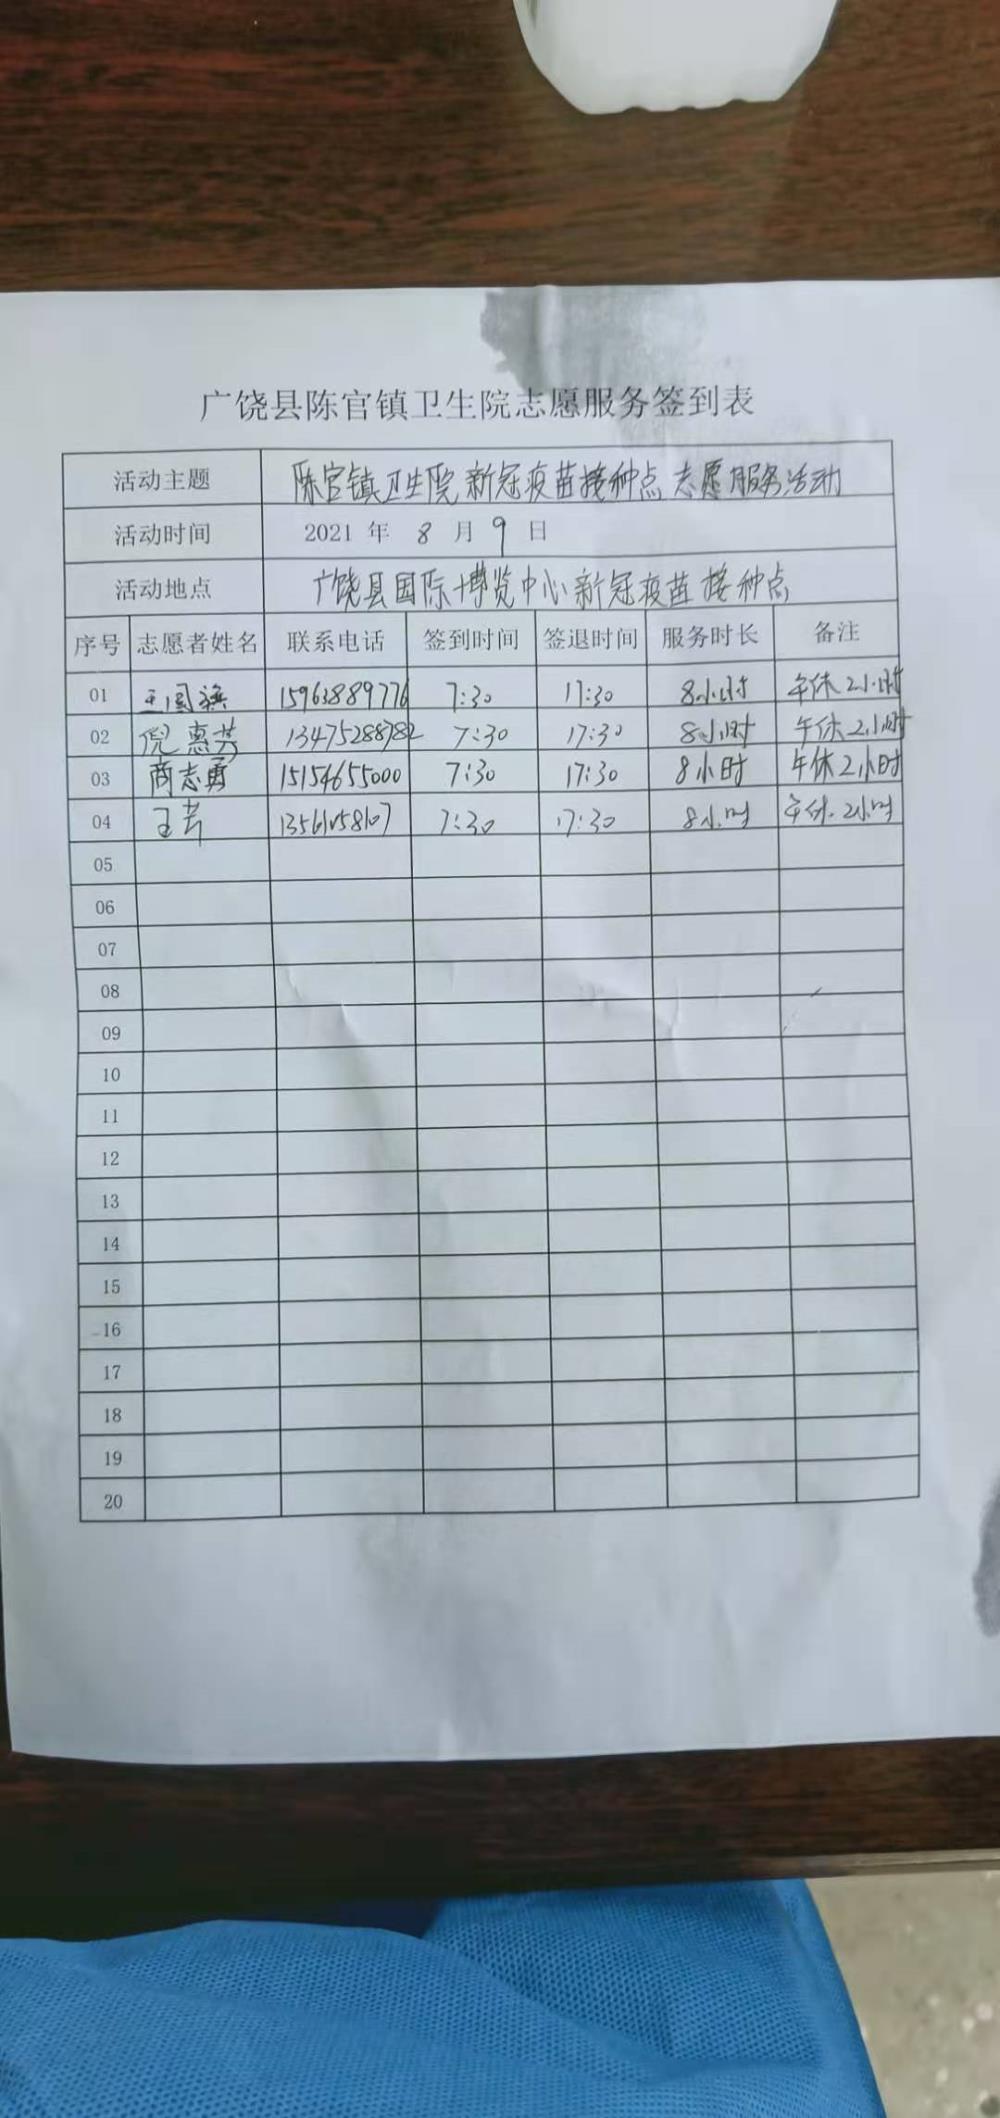 广饶县陈官镇卫生院志愿服务签到表
活动主题 陈官镇卫生院新冠疫苗接种点志愿服务活动
活动时间 2021 年 8 月 9 日
活动地点 广饶县国际博览中心新冠疫苗接种点
序号 志愿者姓名 联系电话 签到时间 签退时间 服务时长 备注
01 王国旗 15963889776 7:30 17:30 8小时 午休2小时
02 倪惠芳 13475288782 7:30 17:30 8小时 午休2小时
03 商志勇 15154655000 7:30 17:30 8小时 午休2小时
04 王芳 7:30 17:30 8小时 午休2小时
05
06
07
08
09
10
11
12
13
14
15
16
17
18
19
20